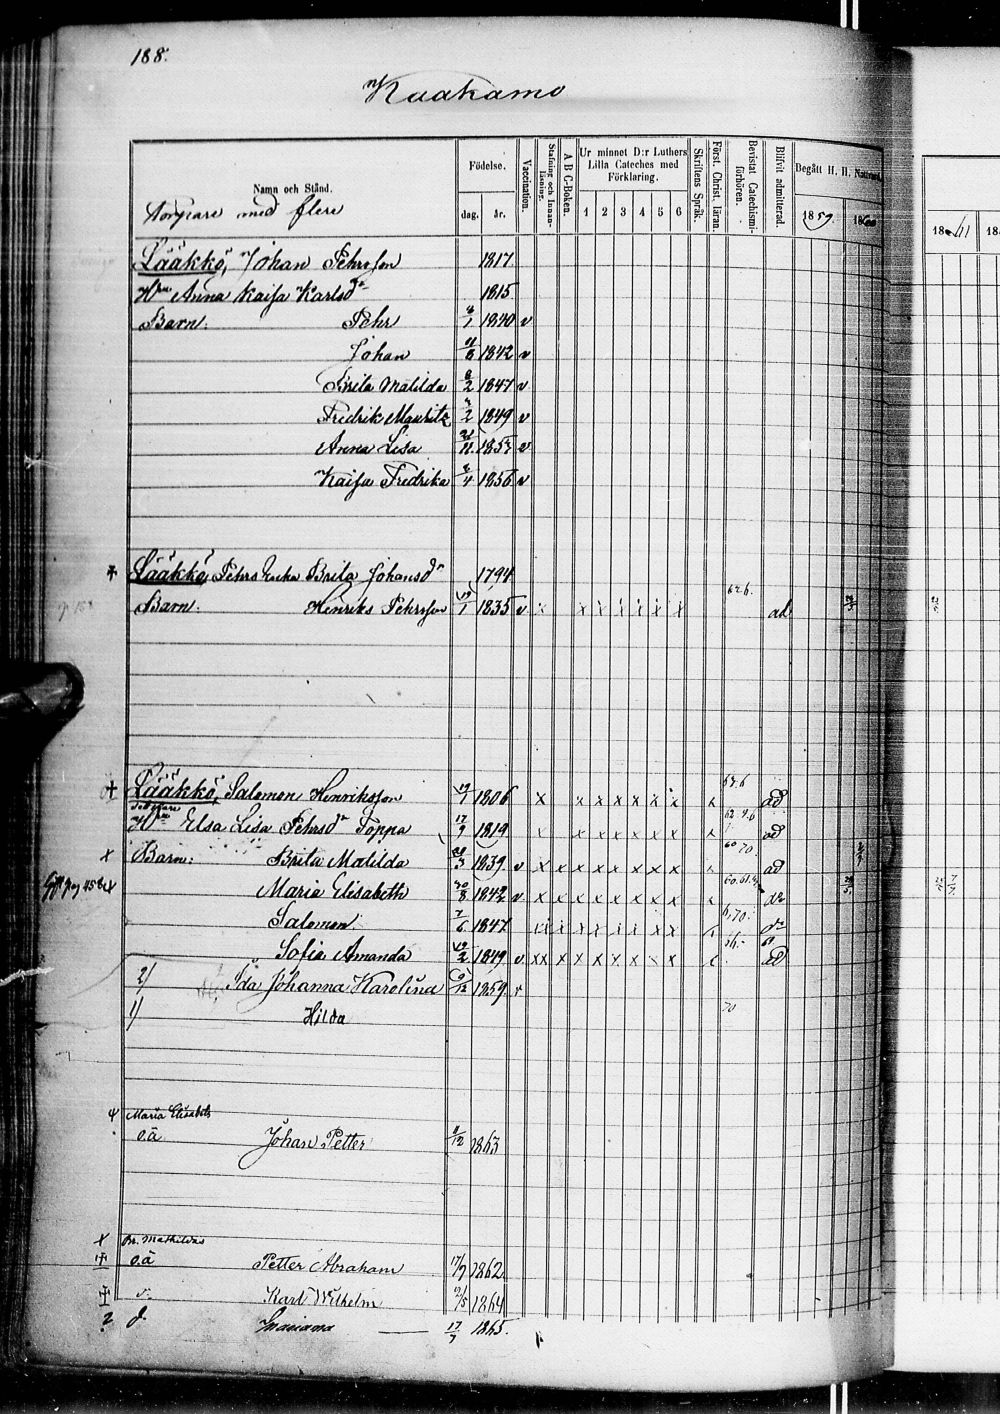 188.
Kaakamo
Namn och Stånd.
Torpare med flere
Födelse.
dag. år.
Vaccination.
Stafning och Innanläsning.
A B C-Boken.
Ur minnet D:r Luthers Lilla Cateches med Förklaring.
1 2 3 4 5 6
Skriftens Språk.
Först. Christ. läran.
Bevistat Catechismiförhören.
Blifvit admitterad.
Begått H. H. Nattvard.
1859. 1860
1861 18
Lääkkö, Johan Pehrsson 1817
Hu Anna Kaisa Karlsdr 1815
Barn: Pehr 1840 v
Johan 11/8 1842 v
Brita Matilda 6/2 1847 v
Fredrik Mauritz 1849 v
Anna Lisa 1853 v
Kaisa Fredrika 1856 v
Lääkkö, Pehrs Enka Brita Johansdr 1794
626.
Barn: Henriks Pehrsson 19/1 1835 v x x x x x x x ad
Lääkkö, Salomon Henriksson 19/7 1806 x x x x x x x x ad
Hu Elsa Lisa Pehrsdr Toppa 17/9 1819 x x x x x x x x ad
60 70
x Barn: Brita Matilda 28/3 1839. v x x x x x x x x x ad
Maria Elisabeth 30/8 1842 v x x x x x x x x x
Salomon 7/6 1847
Sofia Amanda 19/2 1849 v x x x x x x x x x ad
2/ Ida Johanna Karolina 9/12 1859 v
1/ Hilda 70
Maria Elisabets
o.ä Johan Petter 1863
x Br. Mathildas
o.ä Petter Abraham 17/7 1862
Karl Wilhelm 1864
d. Mariana 17/7 1865.